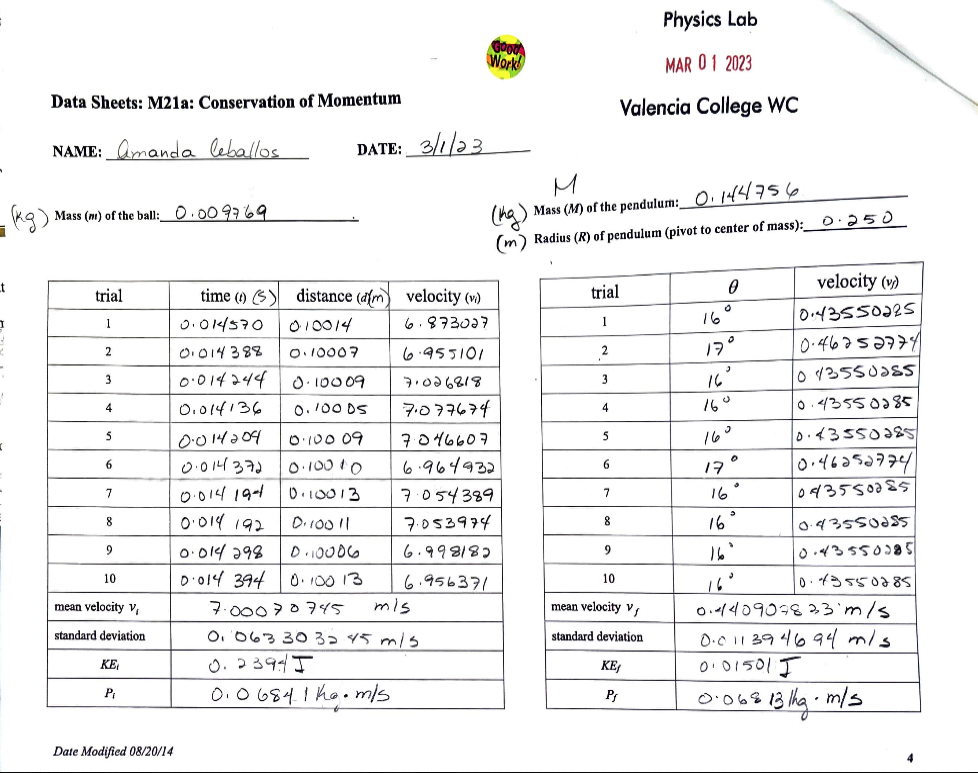 Physics Lab
GOOD Work!
MAR 01 2023
Data Sheets: M21a: Conservation of Momentum
Valencia College WC
NAME: Amanda Ceballos DATE: 3/1/23
(kg) Mass (m) of the ball: 0.009769
M
(kg) Mass (M) of the pendulum: 0.144756
(m) Radius (R) of pendulum (pivot to center of mass): 0.250
trial time (t) (s) distance (d)(m) velocity (vi)
1 0.014570 0.10014 6.873027
2 0.014388 0.10007 6.955101
3 0.014244 0.10009 7.026818
4 0.014136 0.10005 7.077674
5 0.014204 0.10009 7.046607
6 0.014372 0.10010 6.964932
7 0.014194 0.10013 7.054389
8 0.014192 0.10011 7.053974
9 0.014298 0.10006 6.998182
10 0.014394 0.10013 6.956371
mean velocity vi 7.00070745 m/s
standard deviation 0.063303245 m/s
KEi 0.2394 J
Pi 0.06841 kg·m/s
trial θ velocity (vf)
1 16° 0.43550285
2 17° 0.46252774
3 16° 0.43550285
4 16° 0.43550285
5 16° 0.43550285
6 17° 0.46252774
7 16° 0.43550285
8 16° 0.43550285
9 16° 0.43550285
10 16° 0.43550285
mean velocity vf m/s
standard deviation 0.011394694 m/s
KEf 0.01501 J
Pf 0.06813 kg·m/s
Date Modified 08/20/14
4